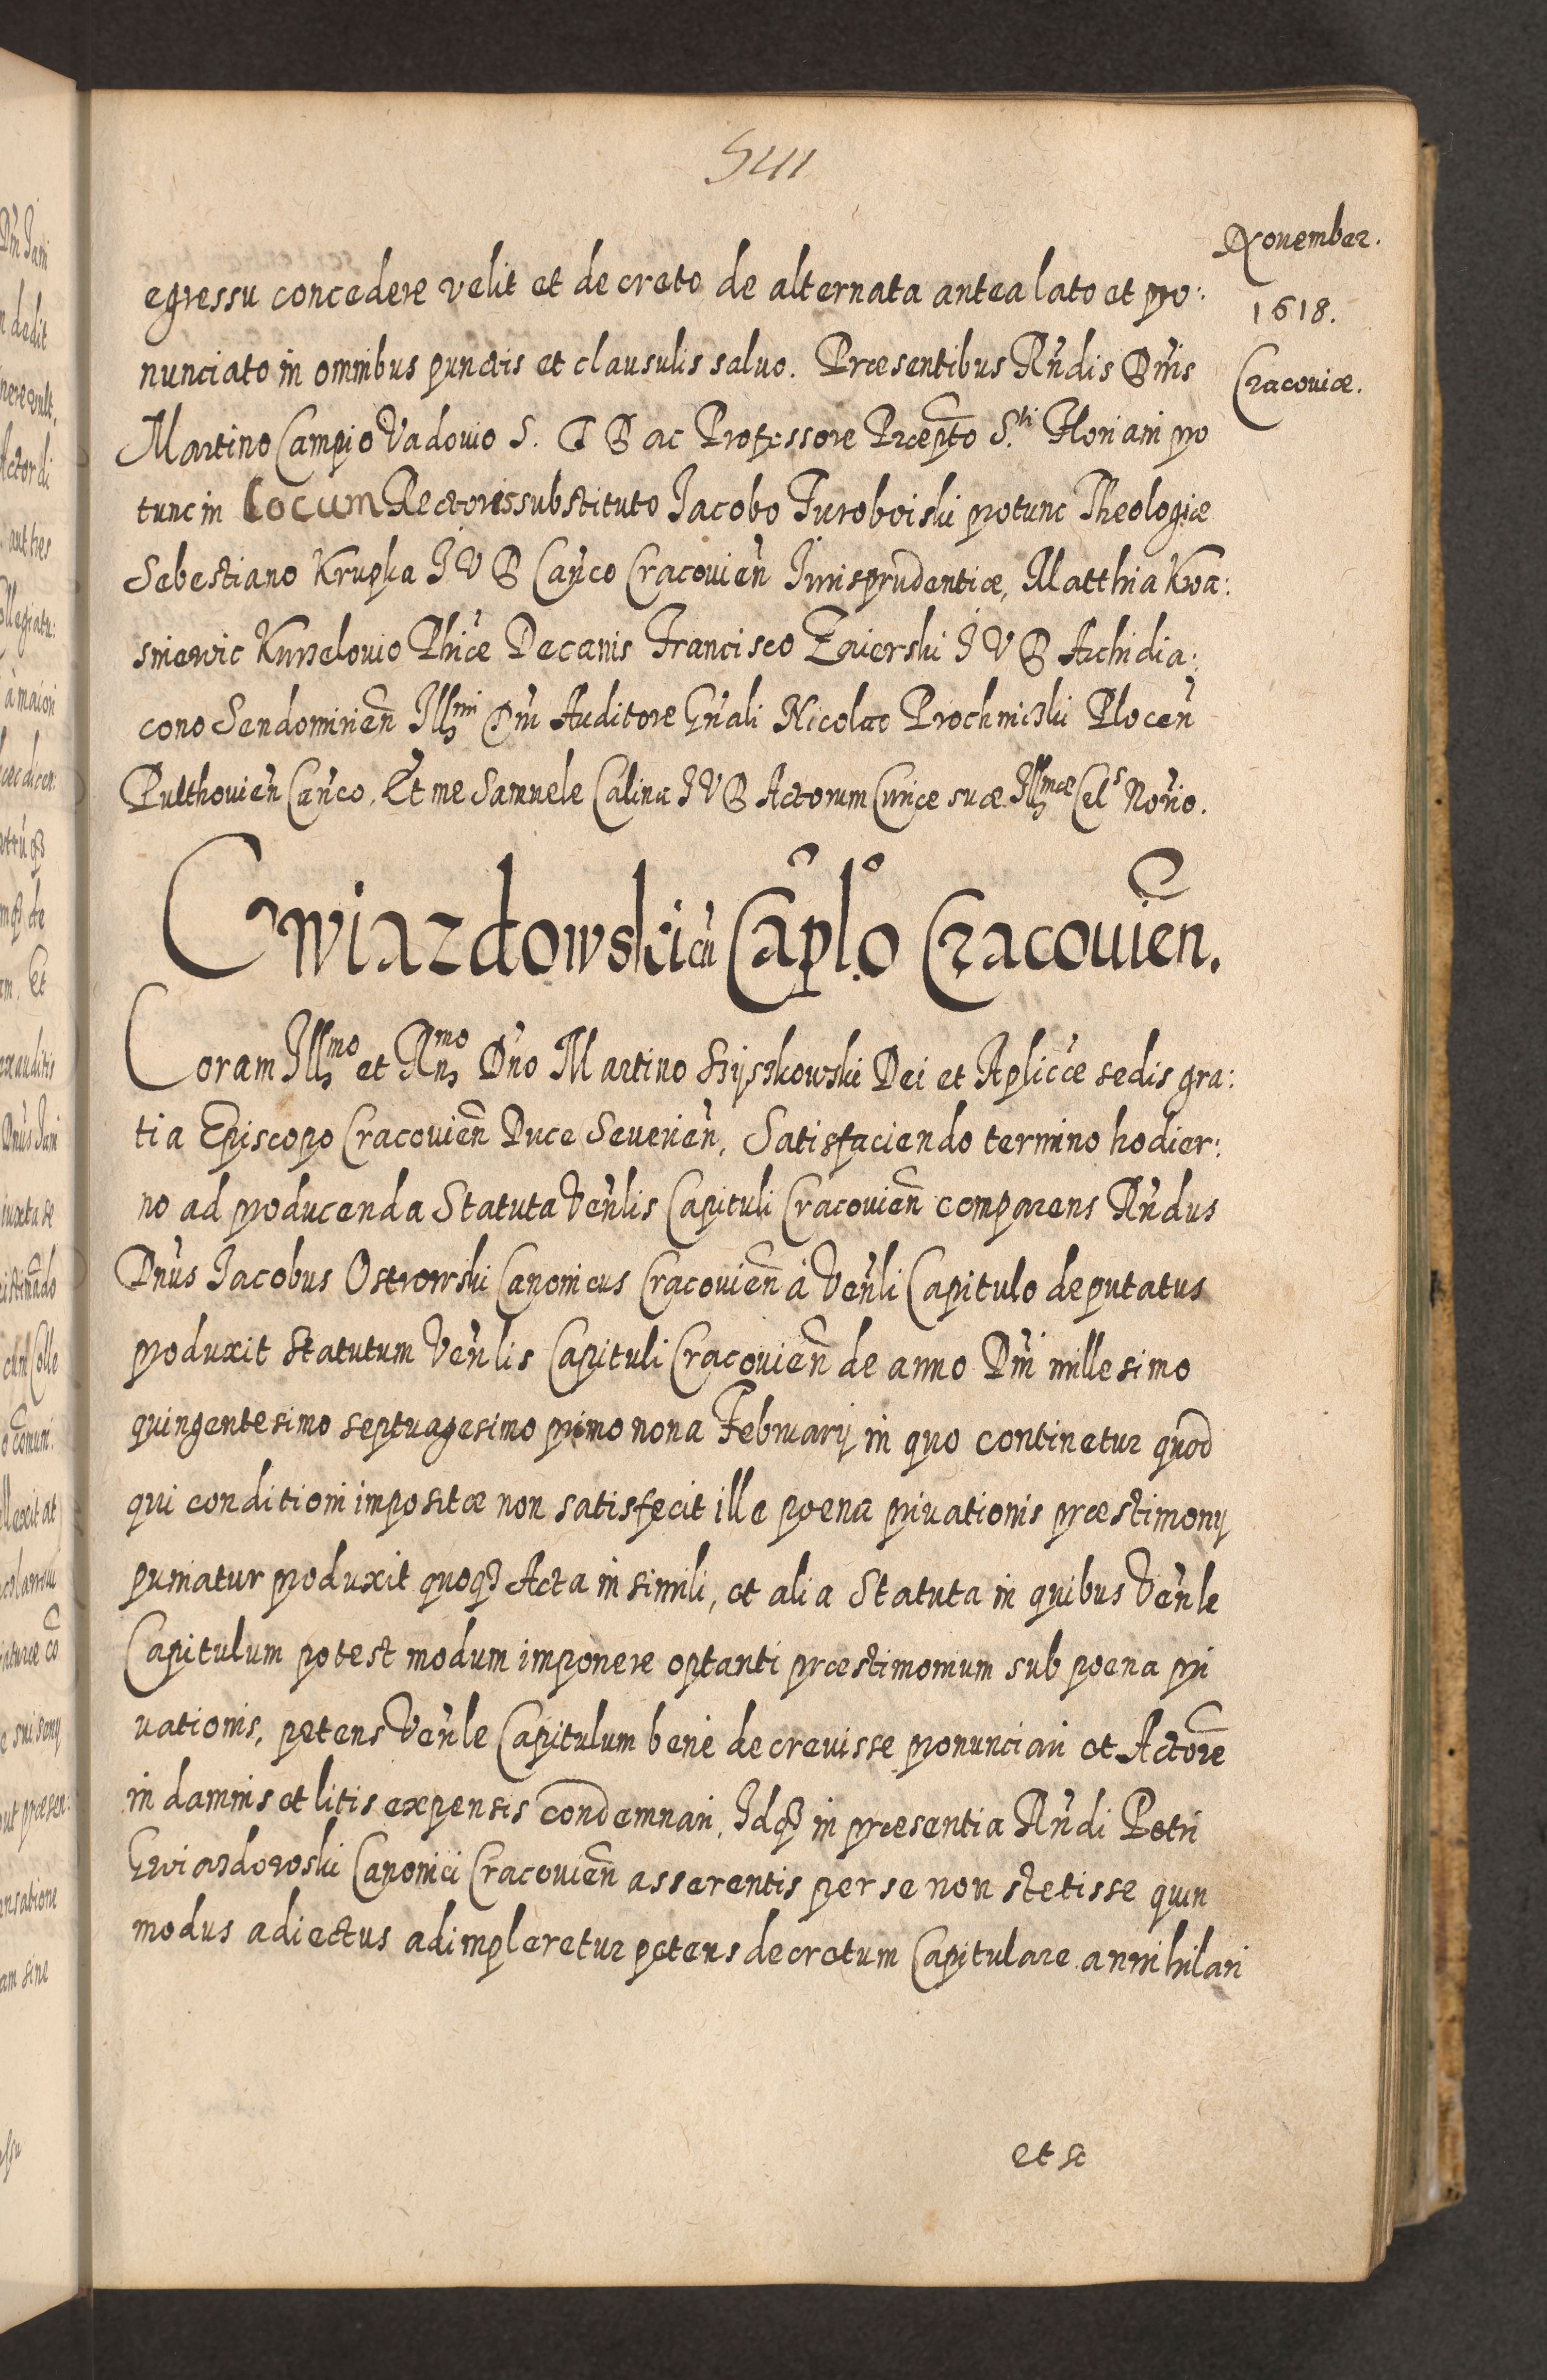 511
November.
1618.
Cracoviæ.
egressu concedere velit et decreto de alternata antea lato et pro:
nunciato in omnibus punctis et clausulis saluo. Præsentibus Rndis Dnis
Martino Campio Vadovio S. T D ac Professore Præpto S.ti Floriani pro
tunc in locum Rectoris substituto Jacobo Turoboiski protunc Theologiæ
Sebestiano Krupka J V D Canco Cracovien Jurisprudentiæ, Matthia Kwa:
sniewic Kurzelovio Phicæ Decanis Francisco Zaierski J V D Archidia:
cono Sendomirien Illmi Dni Auditore Gnali Nicolao Prochnicki Plocen
Pulthovien Canco. Et me Samuele Calina J V D Actorum Curiæ suæ Illmæ Cels Norio.
Gwiazdowski cu Caplo Cracouien.
Coram Illmo et Rnmo Dno Martino Szyszkowski Dei et Aplicæ sedis gra:
tia Episcopo Cracovien Duce Severien, Satisfaciendo termino hodier:
no ad producenda Statuta Venlis Capituli Cracovien comparens Rndus
Dnus Jacobus Ostrowski Canonicus Cracovien à Venli Capitulo deputatus
produxit Statutum Venlis Capituli Cracovien de anno Dni millesimo
quingentesimo septuagesimo primo nona Februarij in quo continetur quod
qui conditioni impositæ non satisfecit ille poena privationis præstimonij
puniatur produxit quoqз Acta in simili, et alia Statuta in quibus Venle
Capitulum potest modum imponere optanti præstimonium sub poena pri
uationis, petens Venle Capitulum bene decrevisse pronunciari et Actore
in damnis et litis expensis condemnari, Idqз in præsentia Rndi Petri
Gwiazdowski Canonici Cracovien asserentis per se non stetisse quin
modus adiectus adimpleretur petens decretum Capitulare annihilari
et se